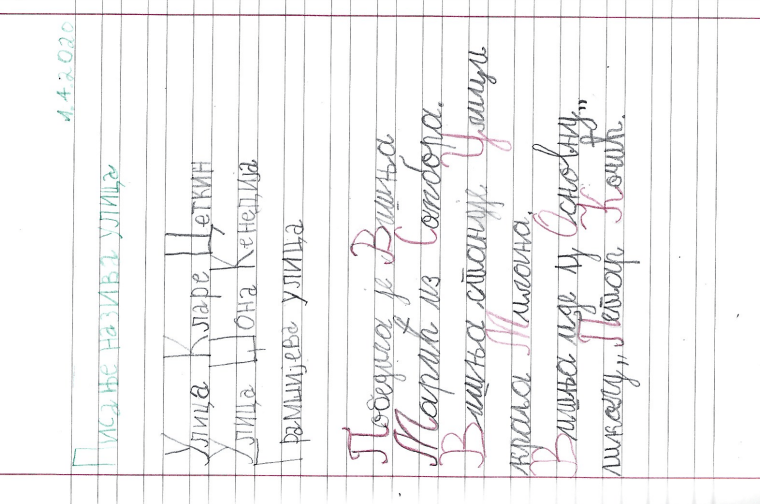 1.4.2020
Писање назива улица
Улица Кларе Цеткин
Улица Џона Кенедија
Грамшијева улица
Победила је Вишња
Марић из Сомбора.
Вишња станује Улици
краља Милана.
Вишња иде у Основну
школу „Петар Кочић”.